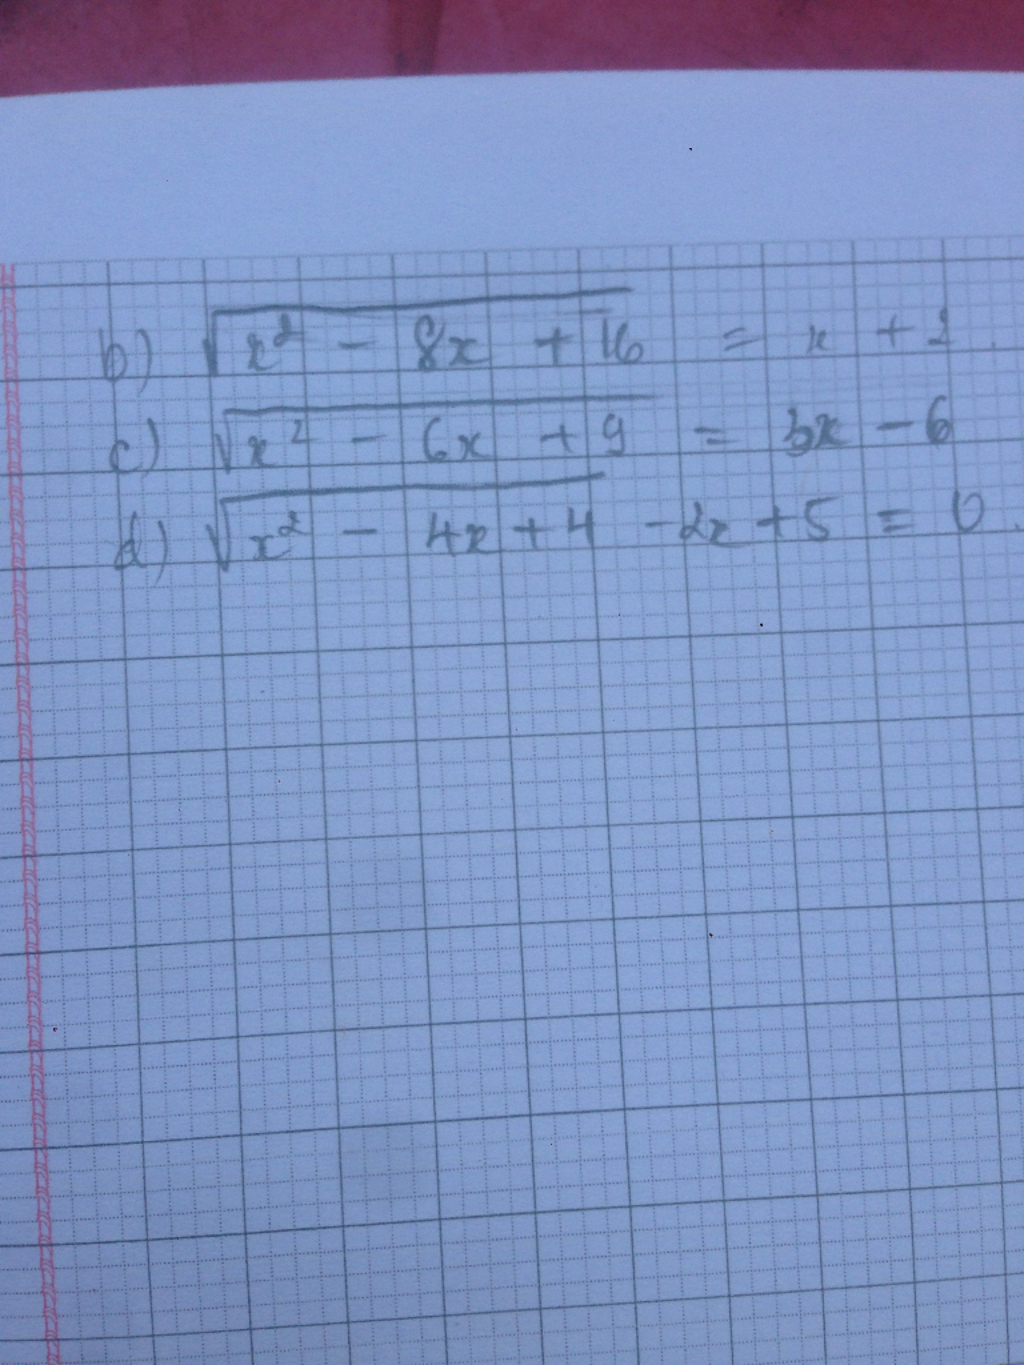 b) √(x² - 8x + 16) = x + 2.
c) √(x² - 6x + 9) = 3x - 6
d) √(x² - 4x + 4) - 2x + 5 = 0.